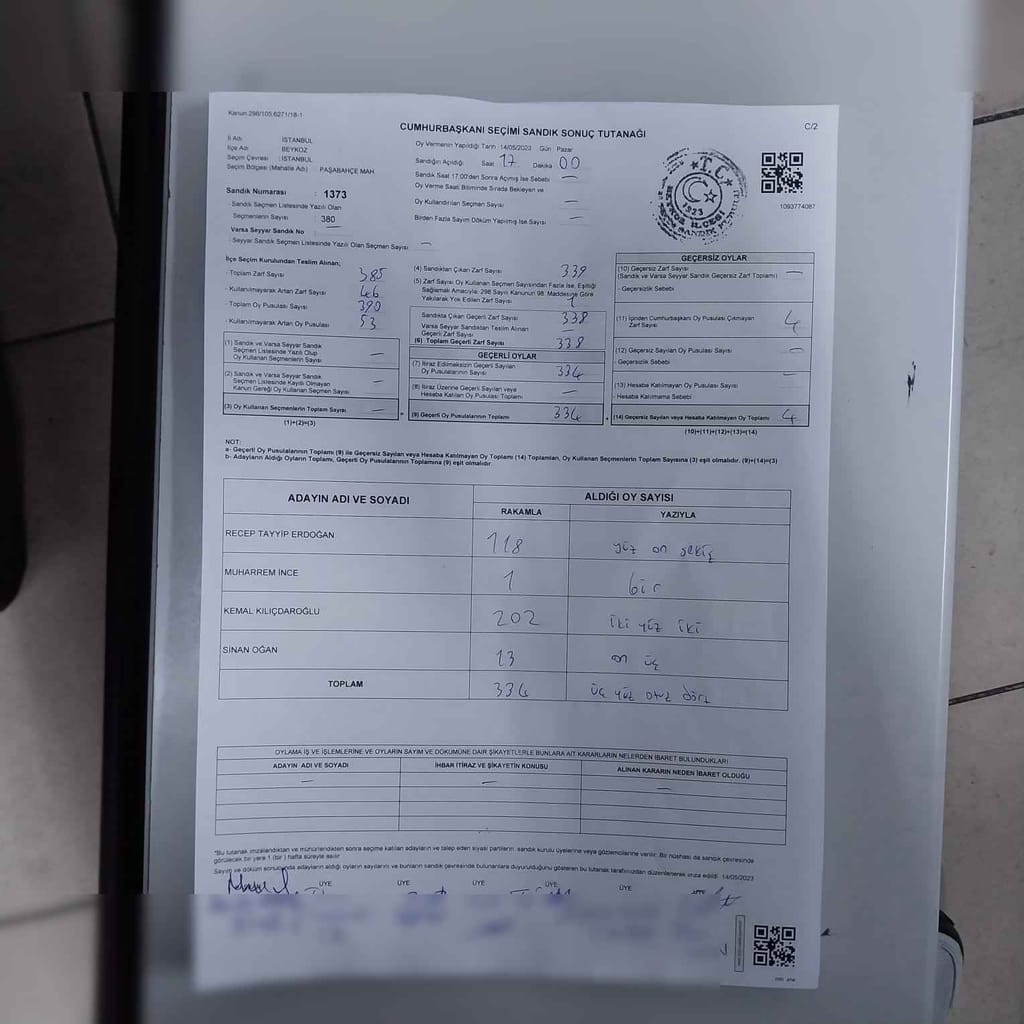 Kanun 298/105,6271/18-1
C/2
CUMHURBAŞKANI SEÇİMİ SANDIK SONUÇ TUTANAĞI
İl Adı : İSTANBUL
İlçe Adı : BEYKOZ
Seçim Çevresi : İSTANBUL
Seçim Bölgesi (Mahalle Adı) : PAŞABAHÇE MAH
Sandık Numarası : 1373
Sandık Seçmen Listesinde Yazılı Olan
Seçmenlerin Sayısı : 380
Varsa Seyyar Sandık No : —
Seyyar Sandık Seçmen Listesinde Yazılı Olan Seçmen Sayısı : —
Oy Vermenin Yapıldığı Tarih : 14/05/2023 Gün : Pazar
Sandığın Açıldığı : Saat 17 Dakika 00
Sandık Saat 17:00'den Sonra Açılmış İse Sebebi —
Oy Verme Saati Bitiminde Sırada Bekleyen ve
Oy Kullandırılan Seçmen Sayısı —
Birden Fazla Sayım Döküm Yapılmış İse Sayısı —
T.C.
1923
1093774087
İlçe Seçim Kurulundan Teslim Alınan;
- Toplam Zarf Sayısı 385
- Kullanılmayarak Artan Zarf Sayısı 46
- Toplam Oy Pusulası Sayısı 390
- Kullanılmayarak Artan Oy Pusulası 53
(1) Sandık ve Varsa Seyyar Sandık
Seçmen Listesinde Yazılı Olup
Oy Kullanan Seçmenlerin Sayısı —
(2) Sandık ve Varsa Seyyar Sandık
Seçmen Listesinde Kayıtlı Olmayan
Kanun Gereği Oy Kullanan Seçmen Sayısı —
(3) Oy Kullanan Seçmenlerin Toplam Sayısı —
(1)+(2)=(3)
(4) Sandıktan Çıkan Zarf Sayısı 339
(5) Zarf Sayısı Oy Kullanan Seçmen Sayısından Fazla İse, Eşitliği
Sağlamak Amacıyla; 298 Sayılı Kanunun 98. Maddesine Göre
Yakılarak Yok Edilen Zarf Sayısı 1
Sandıkta Çıkan Geçerli Zarf Sayısı 338
Varsa Seyyar Sandıktan Teslim Alınan
Geçerli Zarf Sayısı —
(6) Toplam Geçerli Zarf Sayısı 338
GEÇERLİ OYLAR
(7) İtiraz Edilmeksizin Geçerli Sayılan
Oy Pusulalarının Sayısı 334
(8) İtiraz Üzerine Geçerli Sayılan veya
Hesaba Katılan Oy Pusulası Toplamı —
= (9) Geçerli Oy Pusulalarının Toplamı 334
GEÇERSİZ OYLAR
(10) Geçersiz Zarf Sayısı —
(Sandık ve Varsa Seyyar Sandık Geçersiz Zarf Toplamı)
- Geçersizlik Sebebi
(11) İçinden Cumhurbaşkanı Oy Pusulası Çıkmayan
Zarf Sayısı 4
(12) Geçersiz Sayılan Oy Pusulası Sayısı —
- Geçersizlik Sebebi
(13) Hesaba Katılmayan Oy Pusulası Sayısı —
- Hesaba Katılmama Sebebi
+ (14) Geçersiz Sayılan veya Hesaba Katılmayan Oy Toplamı 4
(10)+(11)+(12)+(13)=(14)
NOT:
a- Geçerli Oy Pusulalarının Toplamı (9) ile Geçersiz Sayılan veya Hesaba Katılmayan Oy Toplamı (14) Toplamları, Oy Kullanan Seçmenlerin Toplam Sayısına (3) eşit olmalıdır. (9)+(14)=(3)
b- Adayların Aldığı Oyların Toplamı, Geçerli Oy Pusulalarının Toplamına (9) eşit olmalıdır.
ADAYIN ADI VE SOYADI ALDIĞI OY SAYISI
RAKAMLA YAZIYLA
RECEP TAYYİP ERDOĞAN 118 yüz on sekiz
MUHARREM İNCE 1 bir
KEMAL KILIÇDAROĞLU 202 iki yüz iki
SİNAN OĞAN 13 on üç
TOPLAM 334 üç yüz otuz dört
OYLAMA İŞ VE İŞLEMLERİNE VE OYLARIN SAYIM VE DÖKÜMÜNE DAİR ŞİKAYETLERLE BUNLARA AİT KARARLARIN NELERDEN İBARET BULUNDUKLARI
ADAYIN ADI VE SOYADI İHBAR İTİRAZ VE ŞİKAYETİN KONUSU ALINAN KARARIN NEDEN İBARET OLDUĞU
— — —
*Bu tutanak imzalandıktan ve mühürlendikten sonra seçime katılan adayların ve talep eden siyasi partilerin sandık kurulu üyelerine veya gözlemcilerine verilir. Bir nüshası da sandık çevresinde
görülecek bir yere 1 (bir) hafta süreyle asılır
Sayım ve döküm sonucunda adayların aldığı oyların sayılarını ve bunların sandık çevresinde bulunanlara duyurulduğunu gösteren bu tutanak tarafımızdan düzenlenerek imza edildi. 14/05/2023
ÜYE ÜYE ÜYE ÜYE ÜYE